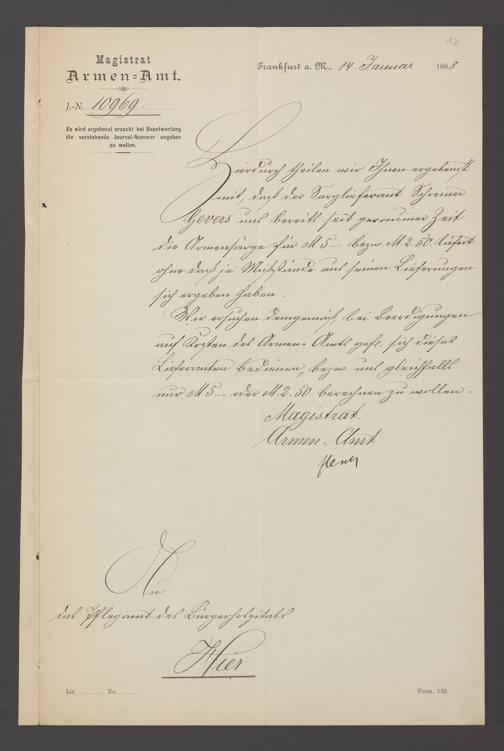 12
Magistrat
Armen-Amt.
Frankfurt a. M., 14. Januar 1888
J.-N. 10969.
Es wird ergebenst ersucht bei Beantwortung
die vorstehende Journal-Nummer angeben
zu wollen.
Hierdurch theilen wir Ihnen ergebenst
mit, daß der Sarglieferant Schreiner
Gevers uns bereits seit geraumer Zeit
die Armensärge für M 5.– bezw. M 2.50. liefert
ohne daß je Mißstände aus seinen Lieferungen
sich ergeben haben.
Wir ersuchen demgemäß, bei Beerdigungen
auf Kosten des Armen-Amts gefl. sich dieses
Lieferanten bedienen, bezw. uns gleichfalls
nur M 5.– oder M 2.50. berechnen zu wollen.
Magistrat.
Armen-Amt
An
das Pflegamt des Bürgerhospitals
Hier
Lit. No. Form. 139.